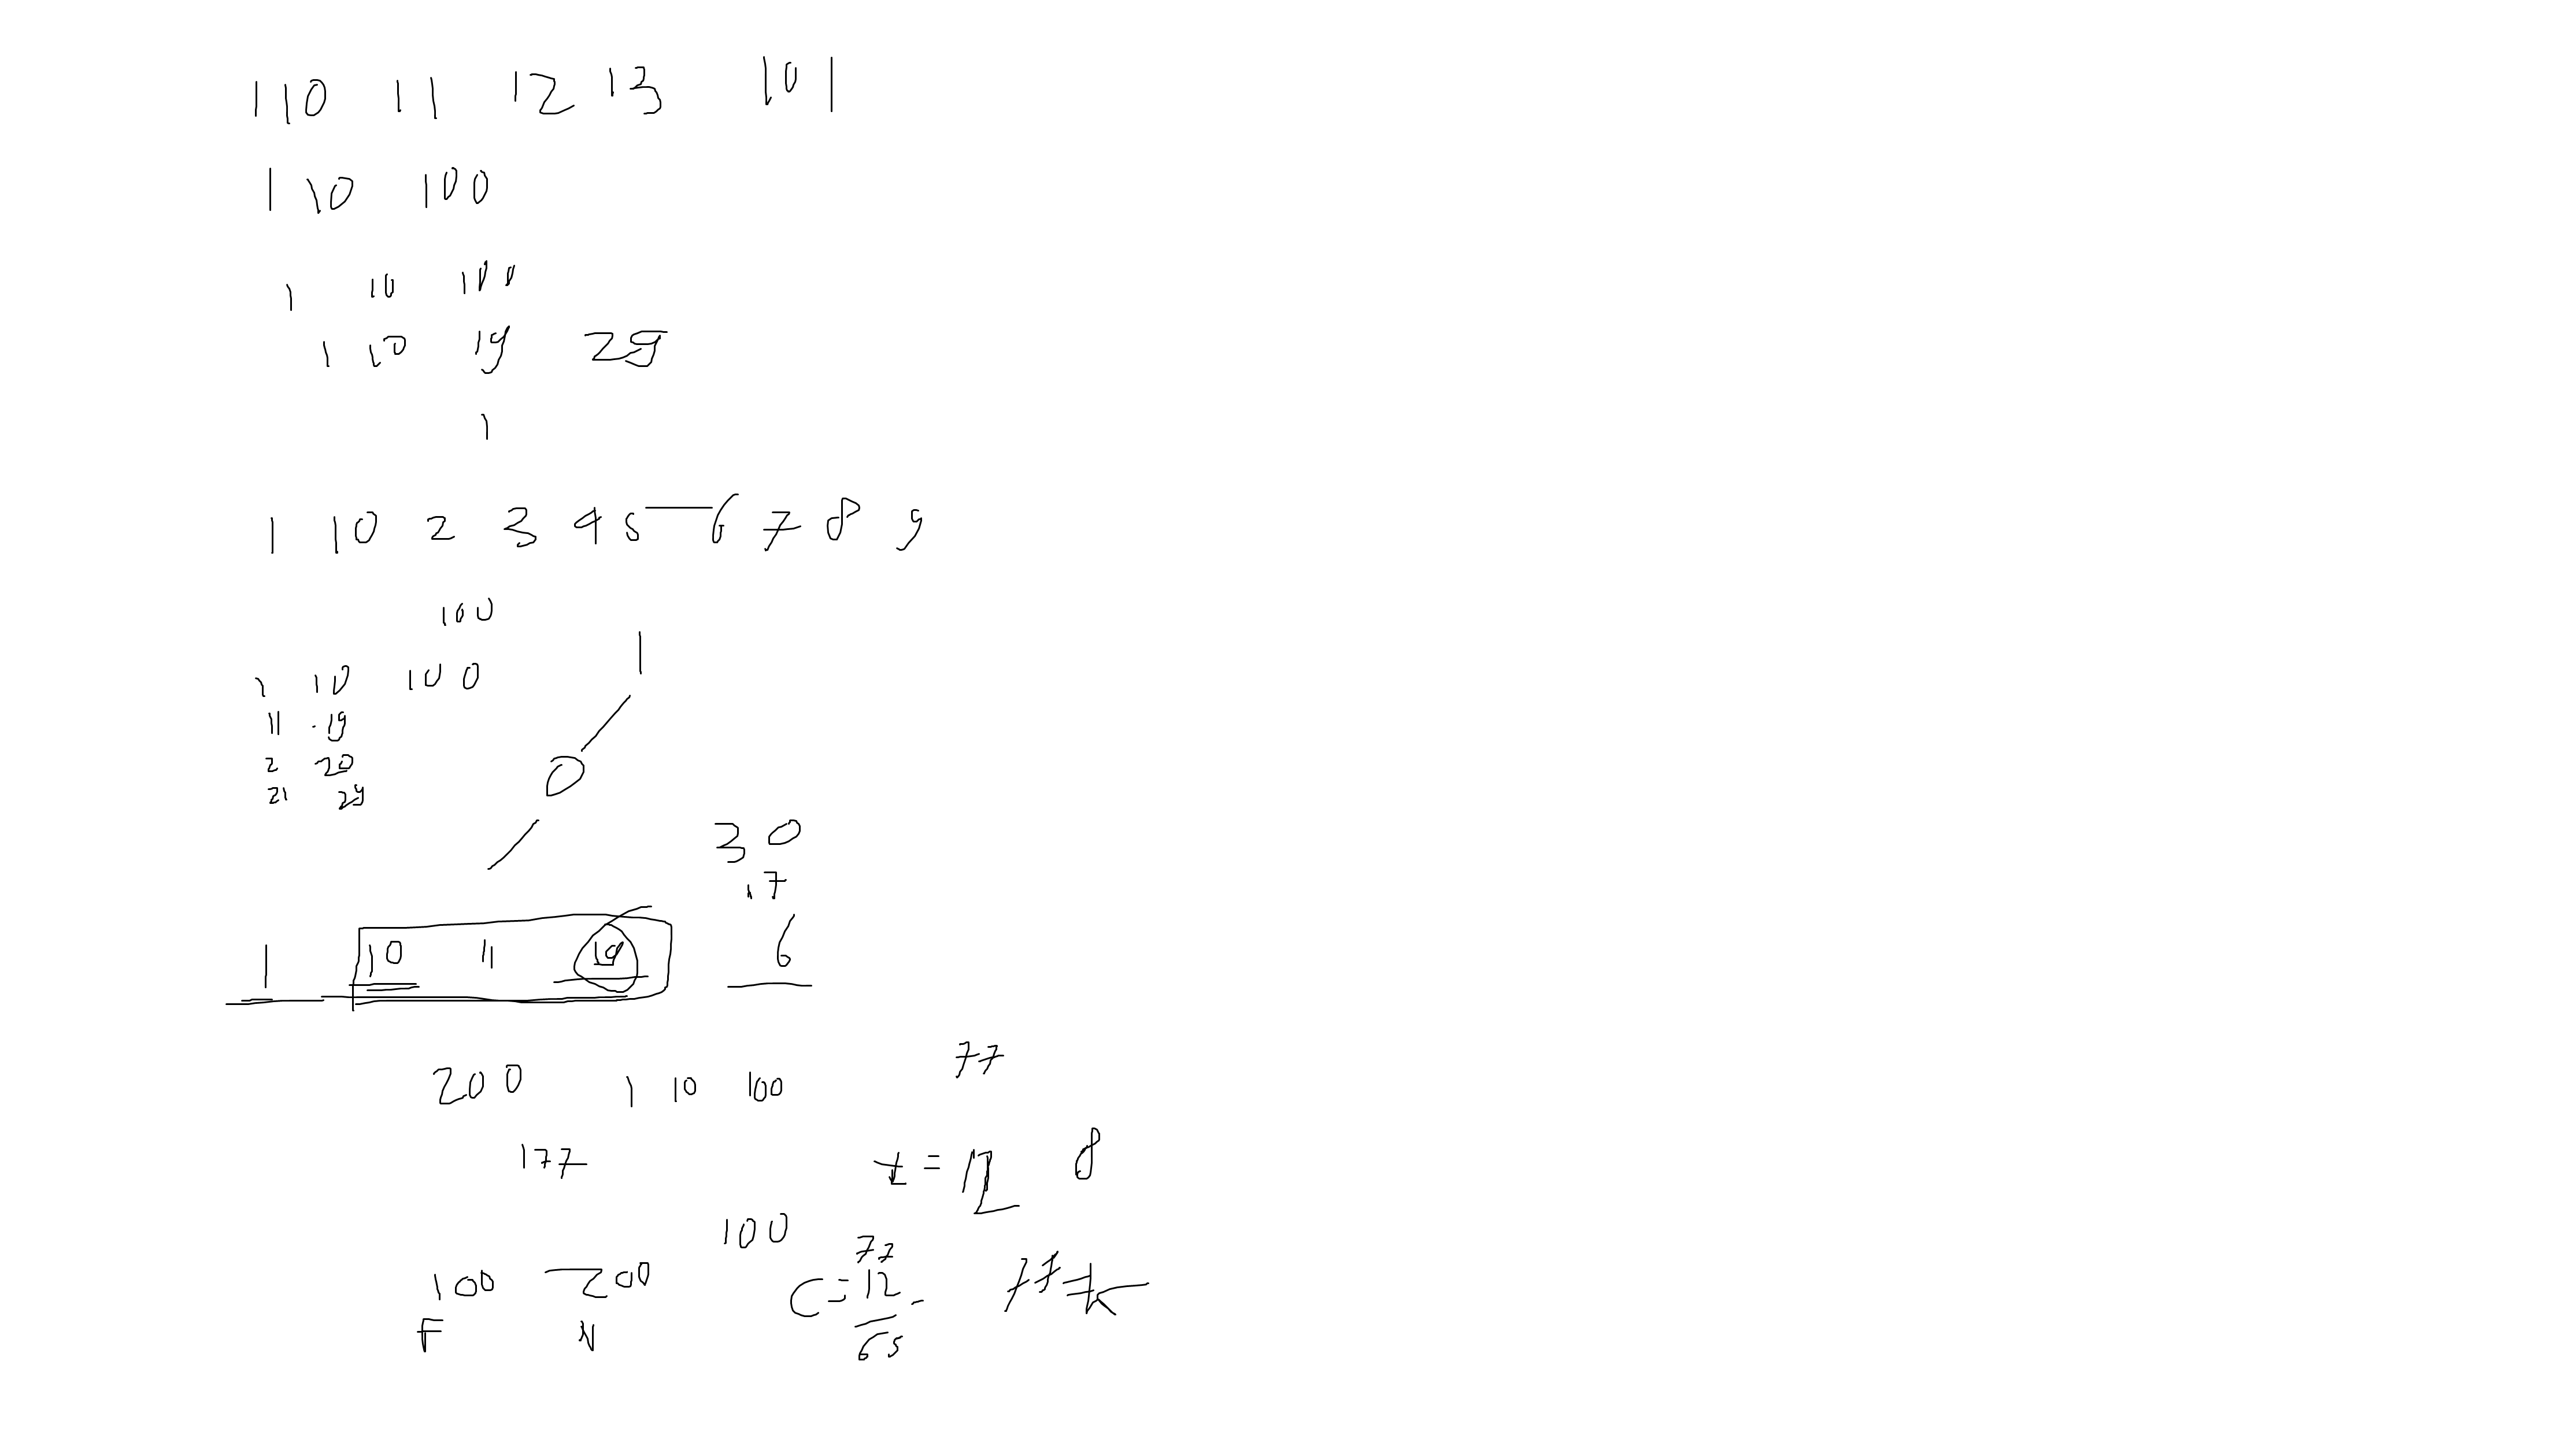 1 10 11 12 13 101
1 10 100
1 10 100
1 10 19 29
1
1 10 2 3 4 5 6 7 8 9
100
1
1 10 100
11 19
2 20
21 29
0
30
17
6
1 10 11 19
77
200 1 10 100
177
8
100
77
100 200
C = 12
65
F N